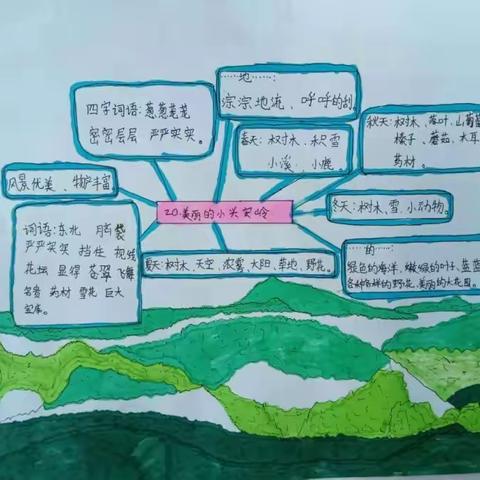 四字词语:葱葱茏茏
密密层层 严严实实。
……地……:
淙淙地流、呼呼的刮。
春天:树木、积雪
小溪、小鹿。
秋天:树木、落叶、山葡萄
榛子、蘑菇、木耳
药材。
风景优美、物产丰富
20.美丽的小兴安岭
冬天:树木、雪、小动物。
词语:东北 脑袋
严严实实 挡住 视线
花坛 显得 苍翠 飞舞
名贵 药材 雪花 巨大
宝库。
夏天:树木、天空、浓雾、太阳、草地、野花。
……的……:
绿色的海洋、嫩绿的叶子、蓝蓝
各种各样的野花、美丽的大花园。